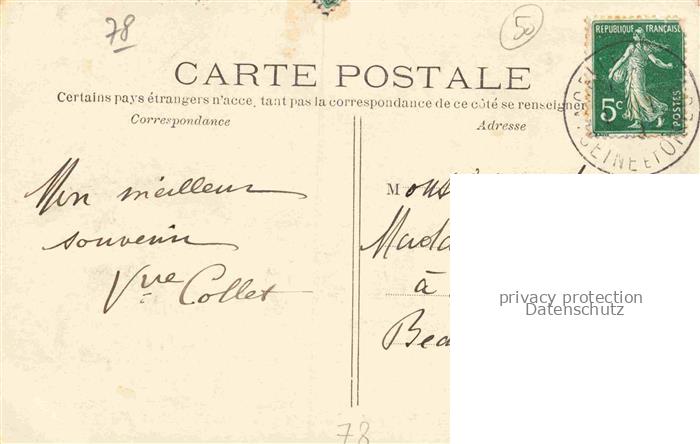 78
50
RÉPUBLIQUE FRANÇAISE
5c
POSTES
SEINE ET OISE
CARTE POSTALE
Certains pays étrangers n'acce. tant pas la correspondance de ce côté se renseigner
Correspondance
Adresse
Mon meilleur
souvenir
Vve Collet
Mons
Mada
à
Bea
privacy protection
Datenschutz
78